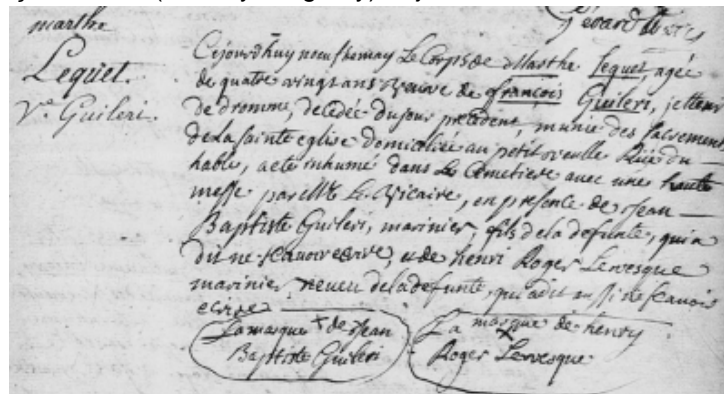 marthe
Lequet.
Ve Guileri.
Cejourd'huy neuf de may Le Corps de Marthe Lequet agée
de quatre vingt ans veuve de françois Guileri,
de dromme, decedée du jour precedent, munie des Sacrements
de la sainte eglise domiciliée au petit veulle Rüe du
hable, a eté inhumé dans Le Cemetiere avec une haute
messe par Mr Le Vicaire, en presence de Jean
Baptiste Guileri, marinier, fils de la defunte, qui a
dit ne scavoir ecrire, et de henri Roger Levesque
marinier neveu de la defunte, qui a dit aussi ne scavoir
ecrire
La marque + de Jean
Baptiste Guileri
La marque de henry
x
Roger Levesque